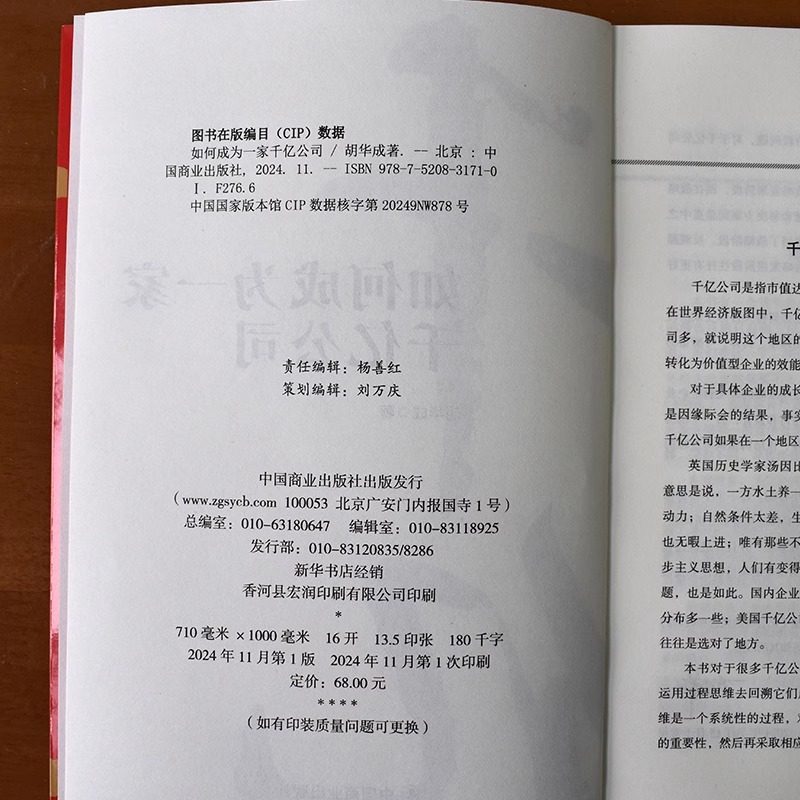 图书在版编目（CIP）数据
如何成为一家千亿公司 / 胡华成著. -- 北京 : 中
国商业出版社, 2024. 11. -- ISBN 978-7-5208-3171-0
Ⅰ. F276.6
中国国家版本馆 CIP 数据核字第 20249NW878 号
责任编辑：杨善红
策划编辑：刘万庆
中国商业出版社出版发行
（www.zgsycb.com 100053 北京广安门内报国寺1号）
总编室：010-63180647 编辑室：010-83118925
发行部：010-83120835/8286
新华书店经销
香河县宏润印刷有限公司印刷
*
710 毫米 × 1000 毫米 16 开 13.5 印张 180 千字
2024 年 11 月第 1 版 2024 年 11 月第 1 次印刷
定价：68.00 元
****
（如有印装质量问题可更换）
千
千亿公司是指市值达
在世界经济版图中，千亿
司多，就说明这个地区的
转化为价值型企业的效能
对于具体企业的成长
是因缘际会的结果，事实
千亿公司如果在一个地区
英国历史学家汤因比
意思是说，一方水土养一
动力；自然条件太差，生
也无暇上进；唯有那些不
步主义思想，人们有变得
题，也是如此。国内企业
分布多一些；美国千亿公
往往是选对了地方。
本书对于很多千亿公
运用过程思维去回溯它们
维是一个系统性的过程，
的重要性，然后再采取相应